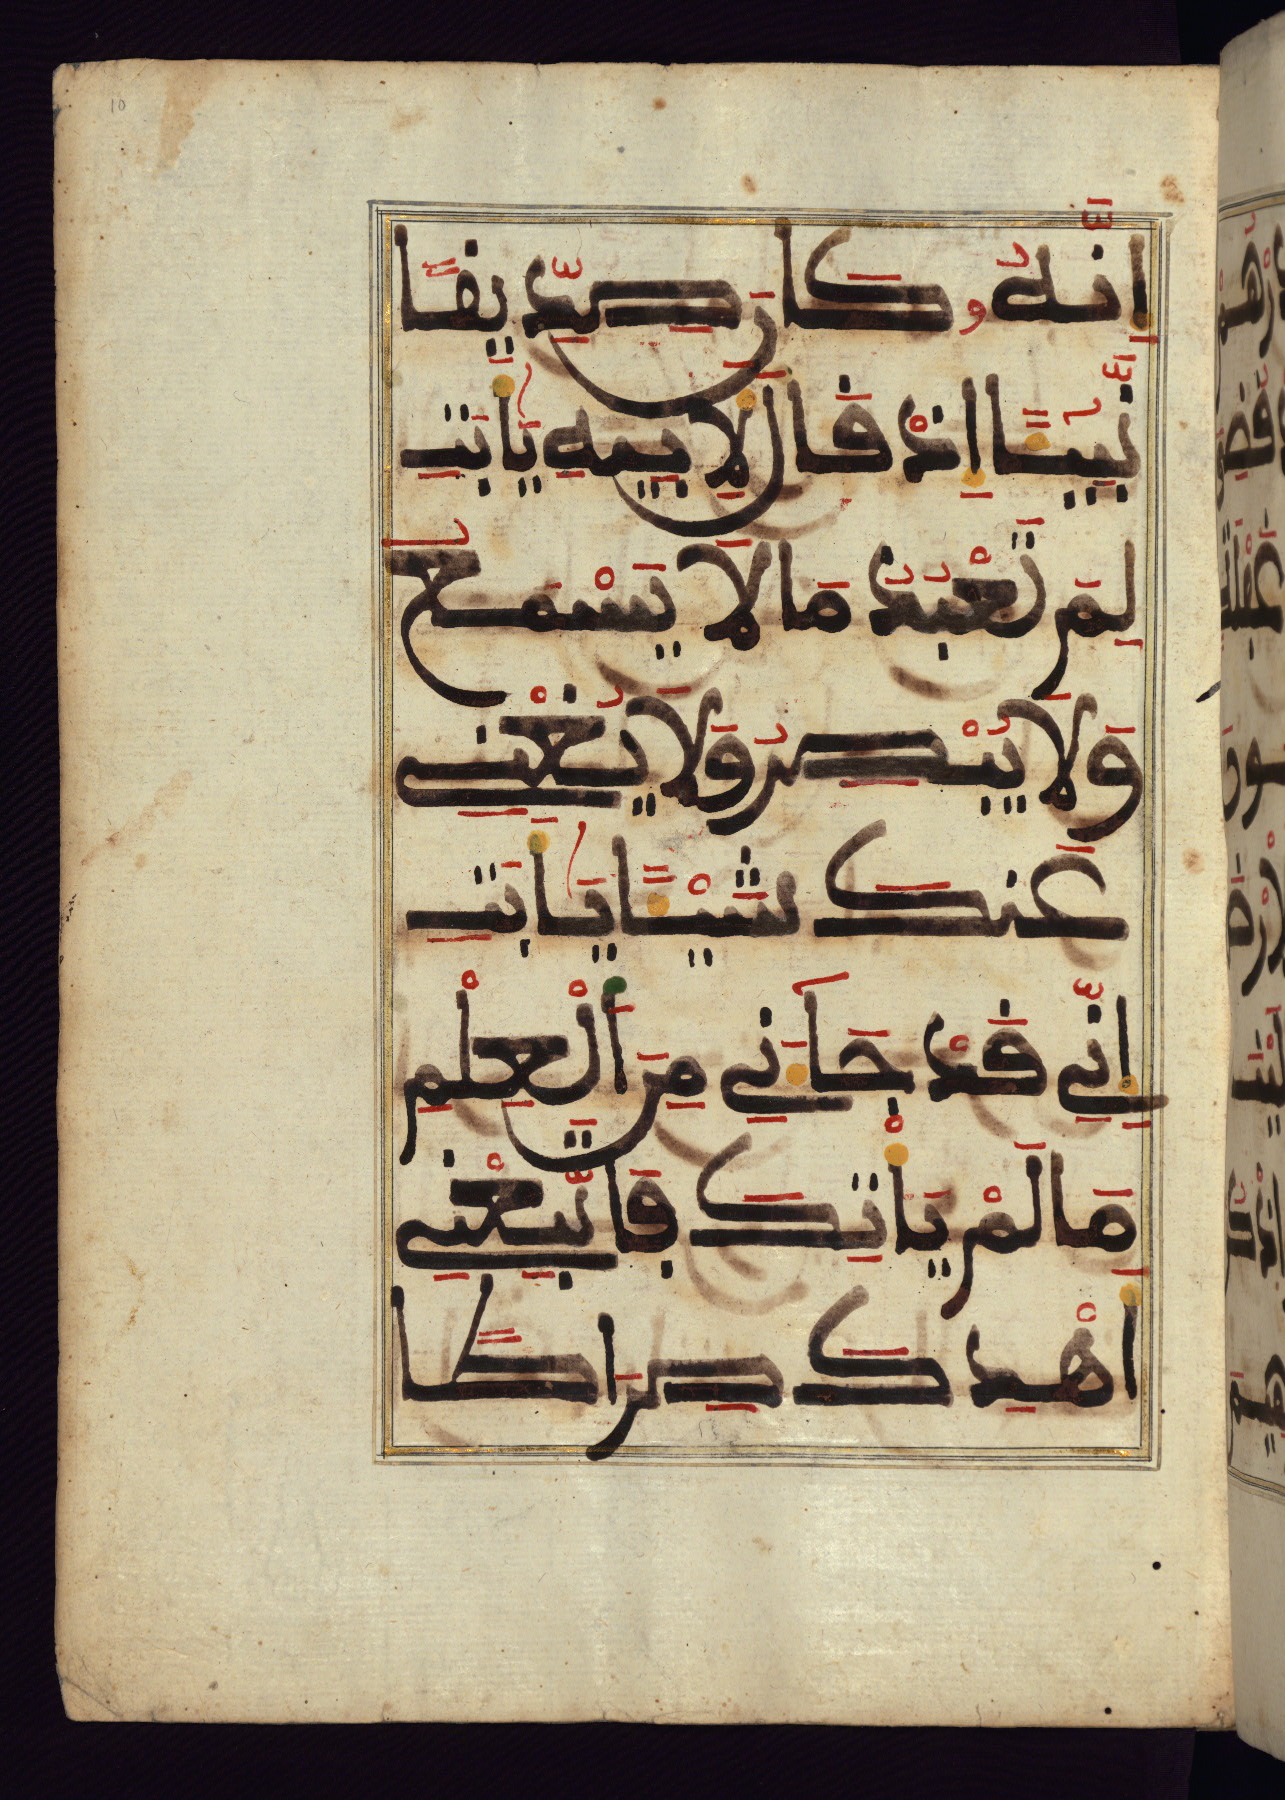 10
إِنَّهُۥ كَانَ صِدِّيقًا
نَّبِيـًٔا إِذْ قَالَ لِأَبِيهِ يَٰأَبَتِ
لِمَ تَعْبُدُ مَا لَا يَسْمَعُ
وَلَا يُبْصِرُ وَلَا يُغْنِي
عَنكَ شَيْـًٔا يَٰأَبَتِ
إِنِّي قَدْ جَآءَنِي مِنَ الْعِلْمِ
مَا لَمْ يَأْتِكَ فَاتَّبِعْنِي
أَهْدِكَ صِرَٰطًا